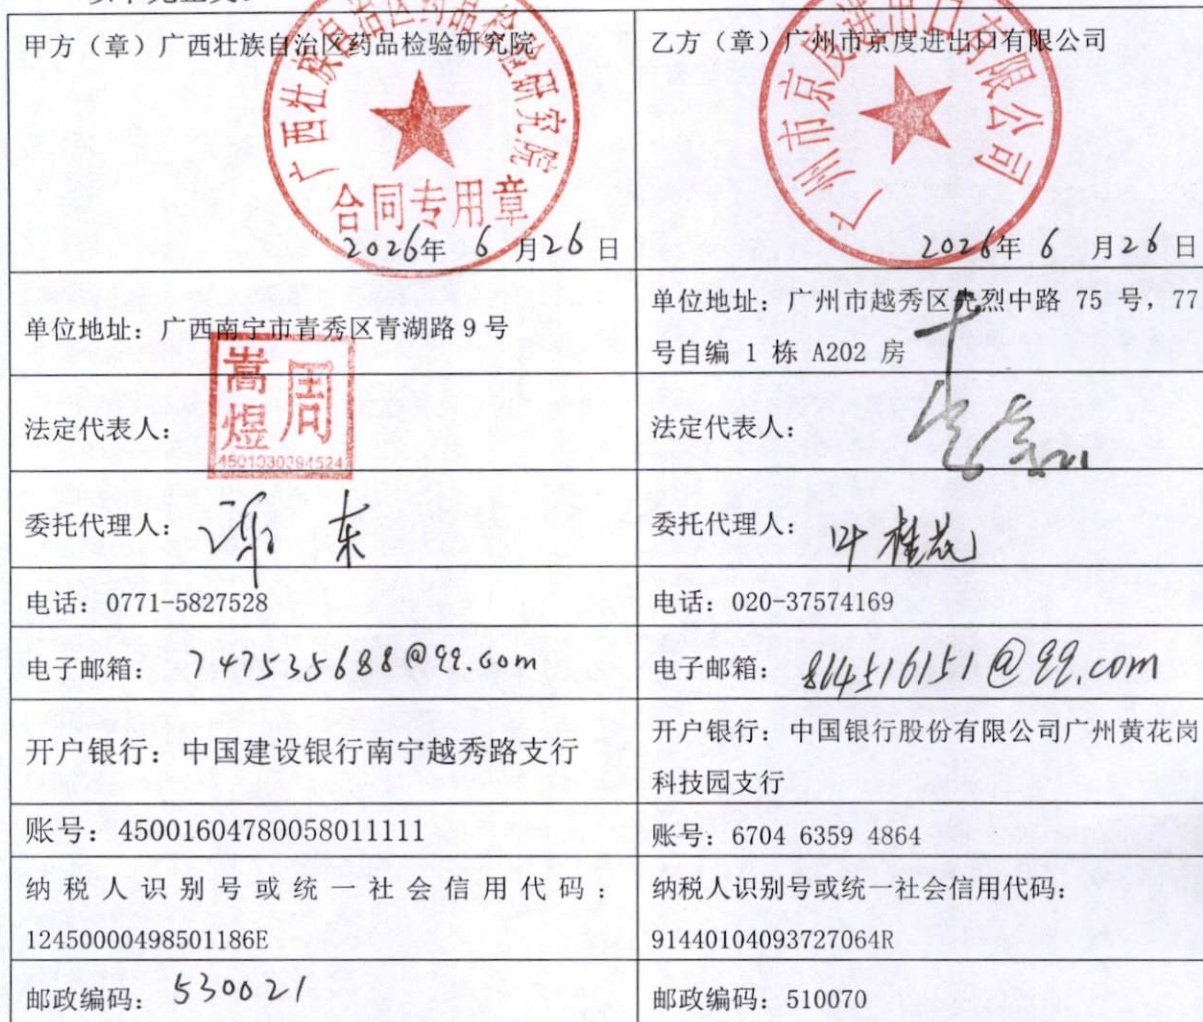 甲方（章）广西壮族自治区药品检验研究院
广西壮族自治区药品检验研究院
合同专用章
2026年 6 月26 日
乙方（章）广州市京度进出口有限公司
广州市京度进出口有限公司
2026年 6 月26 日
单位地址：广西南宁市青秀区青湖路 9 号
单位地址：广州市越秀区先烈中路 75 号，77
号自编 1 栋 A202 房
法定代表人：
周嵩煜
4501030394524
法定代表人：
委托代理人：
委托代理人：叶桂花
电话：0771-5827528
电话：020-37574169
电子邮箱：747535688@qq.com
电子邮箱：814516151@qq.com
开户银行：中国建设银行南宁越秀路支行
开户银行：中国银行股份有限公司广州黄花岗
科技园支行
账号：45001604780058011111
账号：6704 6359 4864
纳税人识别号或统一社会信用代码：
12450000498501186E
纳税人识别号或统一社会信用代码：
91440104093727064R
邮政编码：530021
邮政编码：510070